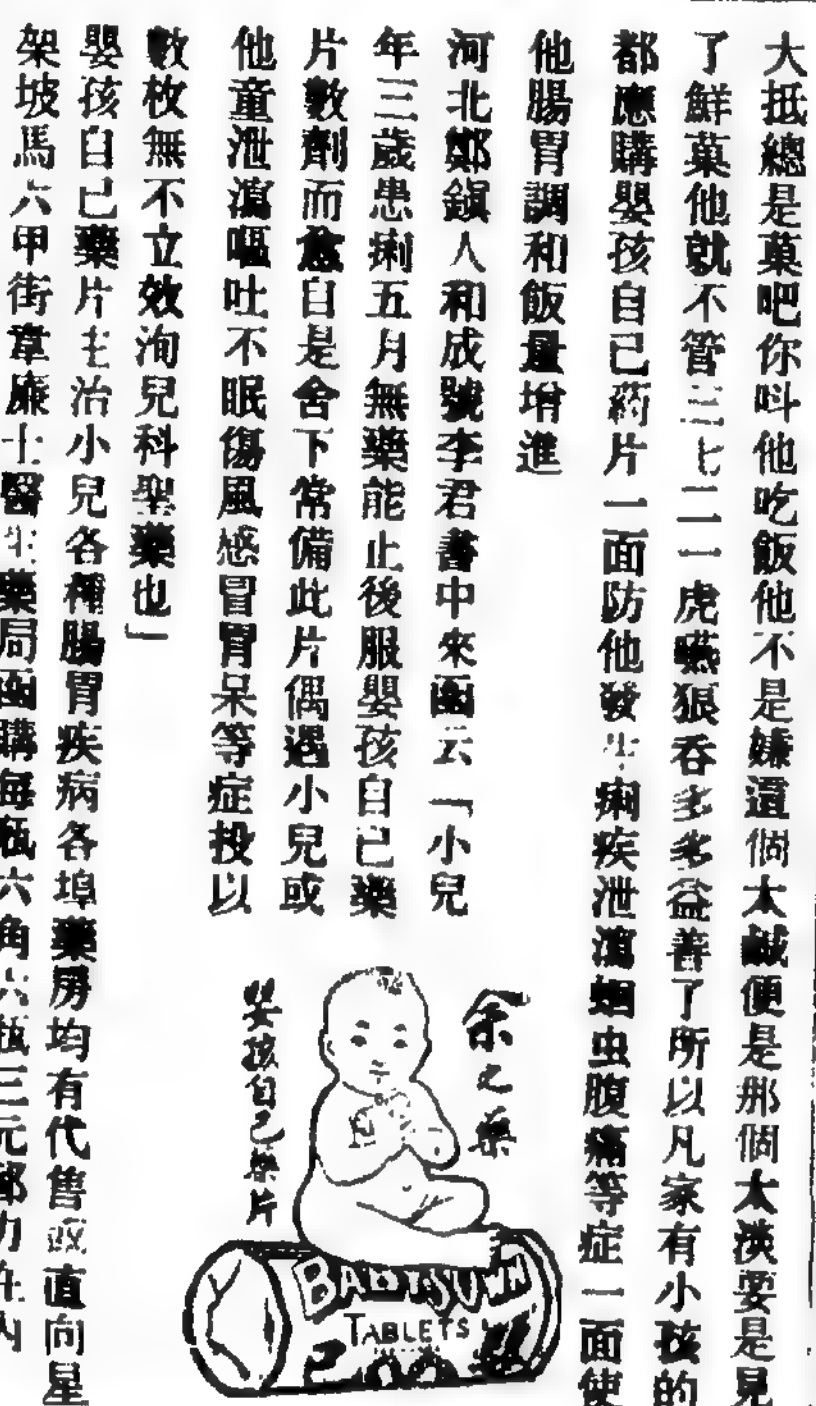 大抵總是菓吧你呌他吃飯他不是嫌這個太鹹便是那個太淡要是見
了鮮菓他就不管三七二一虎嚥狼吞多多益善了所以凡家有小孩的
都應購嬰孩自己葯片一面防他發生痢疾泄瀉蛔虫腹痛等症一面使
他腸胃調和飯量增進
河北鄭鎮人和成號李君書中來函云「小兒
年三歲患痢五月無藥能止後服嬰孩自己藥
片數劑而愈自是舍下常備此片偶遇小兒或
他童泄瀉嘔吐不眠傷風感冒胃呆等症投以
數枚無不立效洵兒科聖藥也」
嬰孩自己藥片主治小兒各種腸胃疾病各埠藥房均有代售或直向星
架坡馬六甲街韋廉士醫生藥局函購每瓶六角六瓶三元郵力在內
余之藥
嬰孩自己藥片
BABY'S OWN
TABLETS